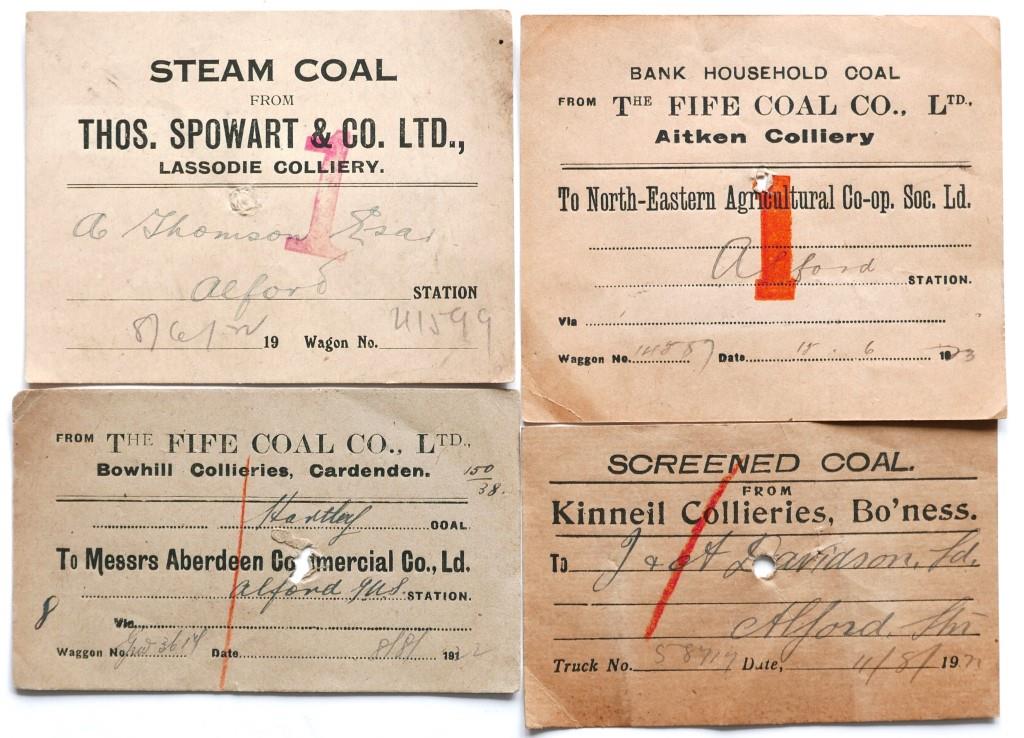 STEAM COAL
FROM
THOS. SPOWART & CO. LTD.,
LASSODIE COLLIERY.
1
A Thomson Esq.
Alford STATION
8/6/22 19 Wagon No. 41599
BANK HOUSEHOLD COAL
FROM THE FIFE COAL CO., LTD.,
Aitken Colliery
To North-Eastern Agricultural Co-op. Soc. Ld.
1
Alford STATION.
Via
Waggon No. 14887 Date 15. 6 1923
FROM THE FIFE COAL CO., LTD.,
Bowhill Collieries, Cardenden.
150
38.
Hartley COAL
To Messrs Aberdeen Commercial Co., Ld.
Alford STATION.
8
Via
Waggon No. 3614 Date 8/8/ 1922
SCREENED COAL.
FROM
Kinneil Collieries, Bo'ness.
To J & A Davidson, Ld,
Alford, Stn
Truck No. 58917 Date, 11/8/ 192